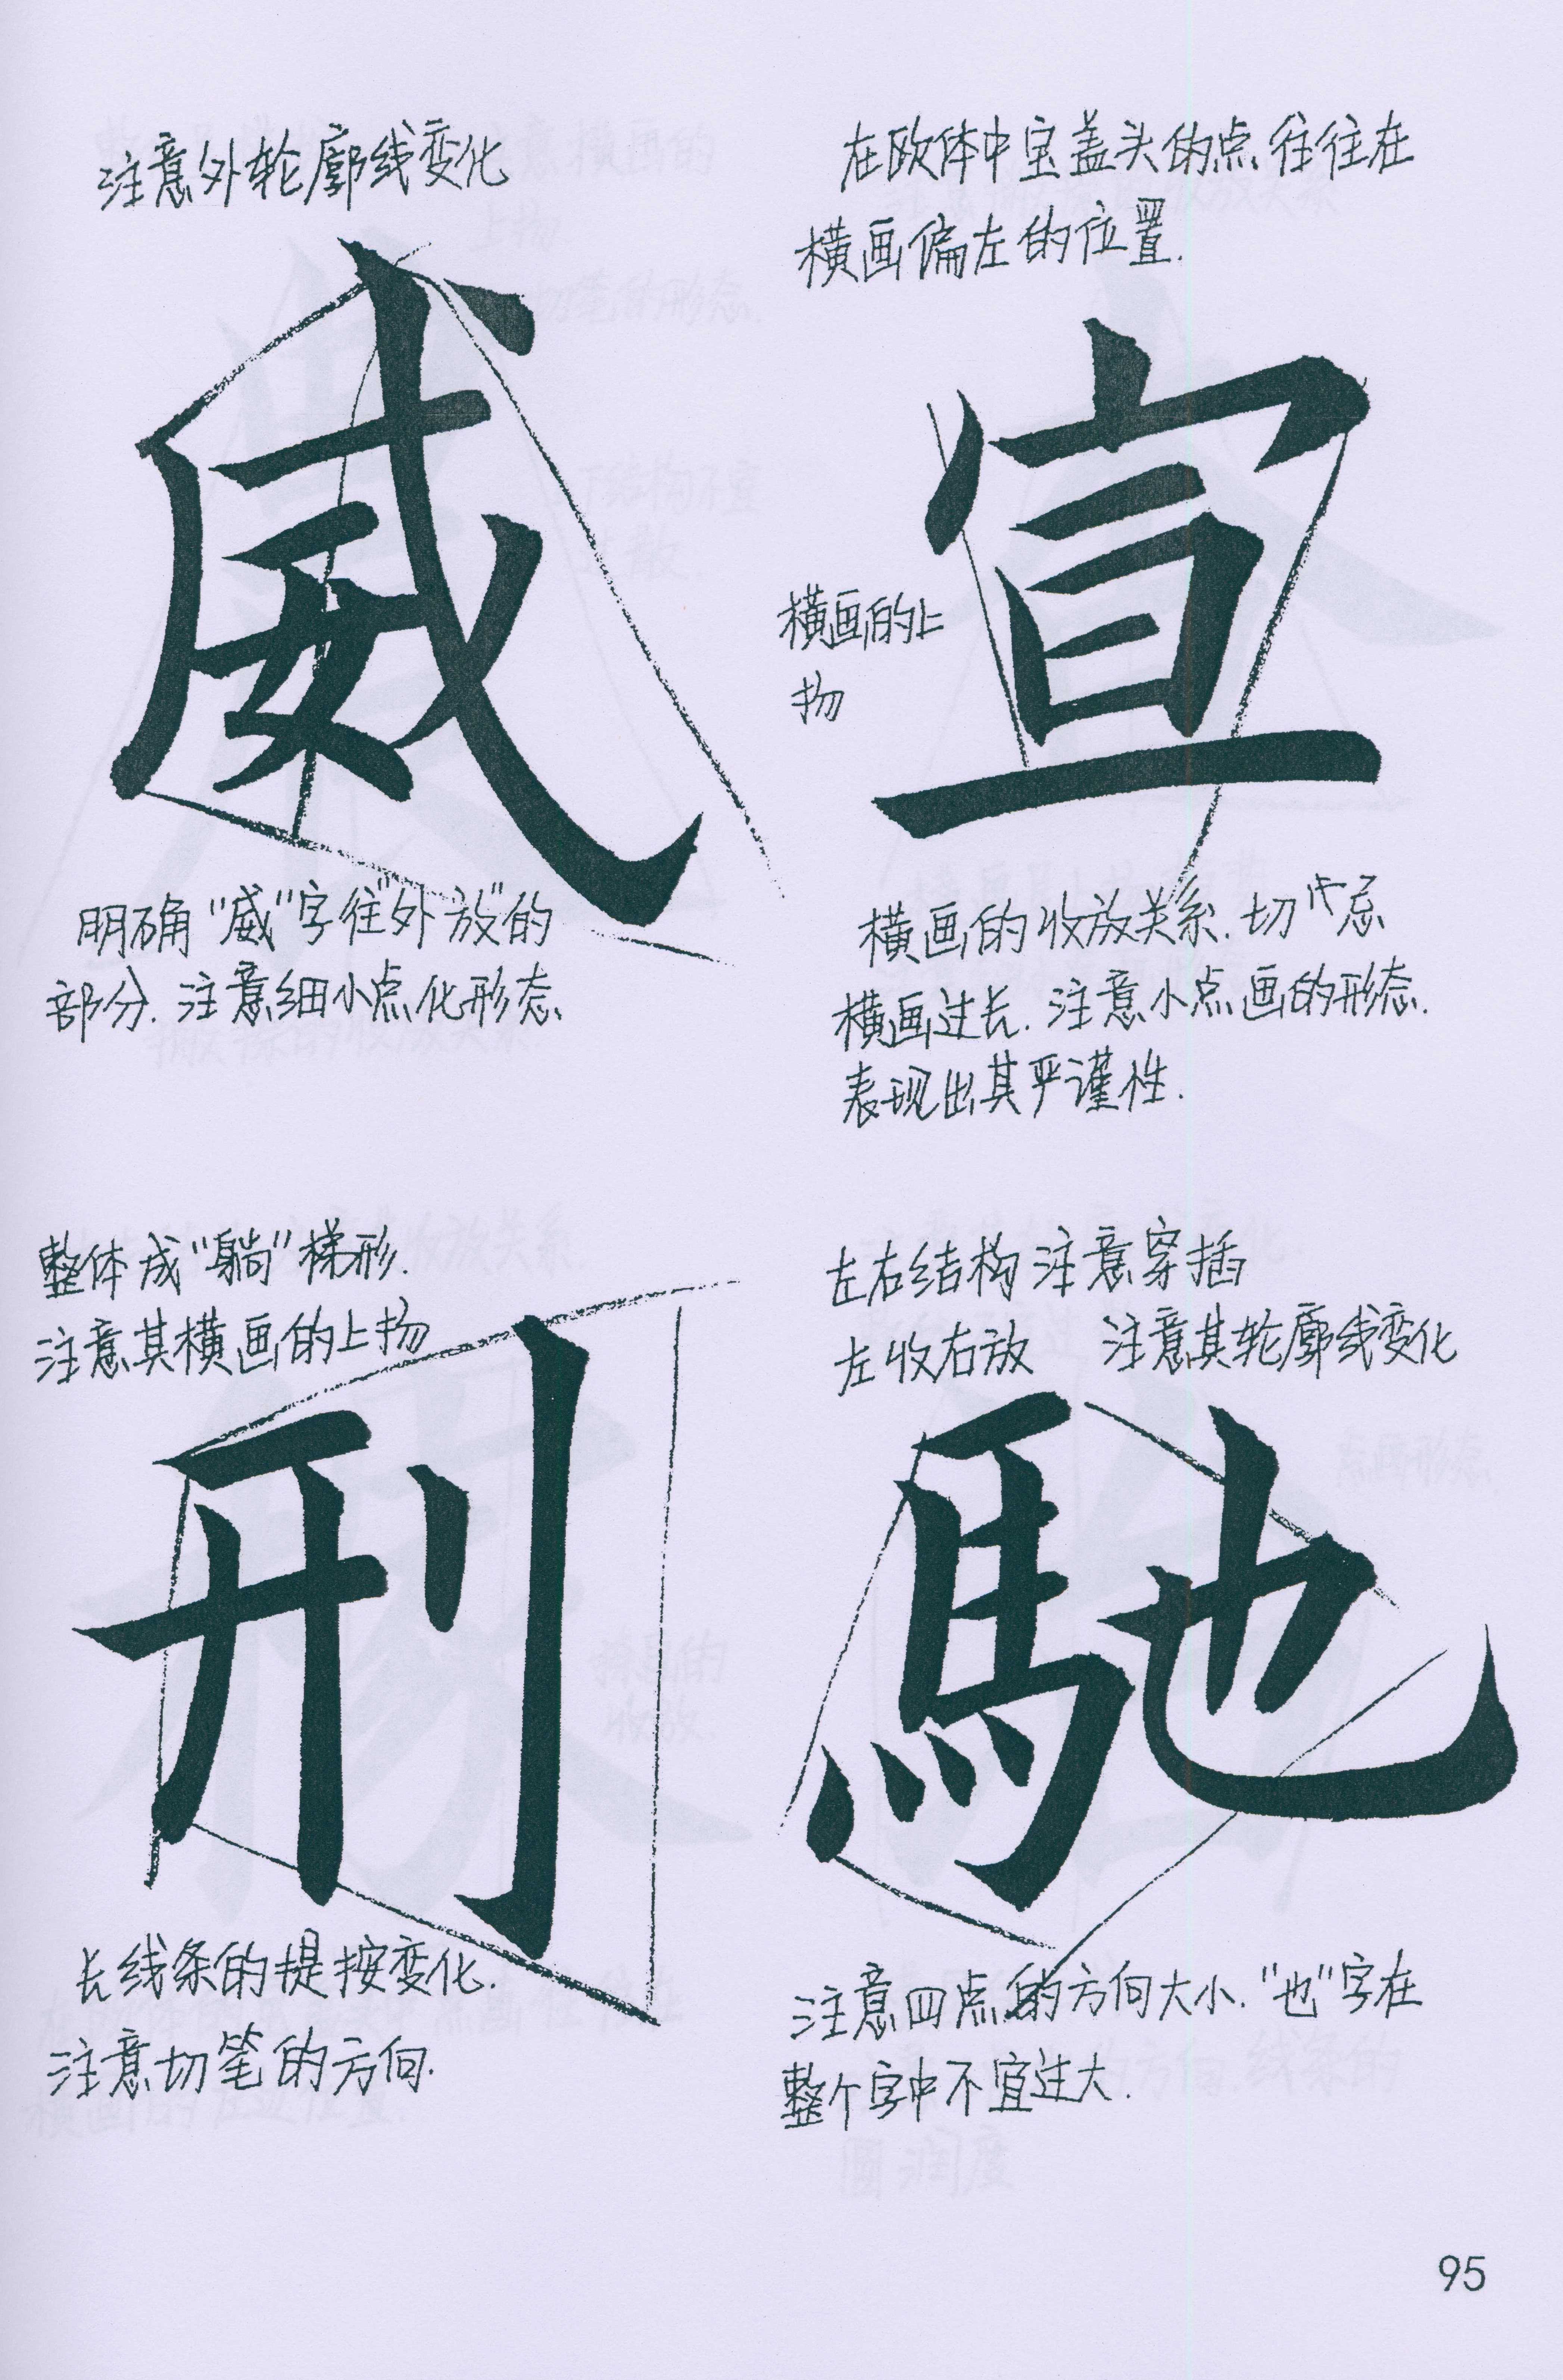 注意外轮廓线变化
威
明确"威"字往"外放"的
部分.注意细小点化形态.
在欧体中宝盖头的点往往在
横画偏左的位置.
宣
横画的上
扬
横画的收放关系.切忌
横画过长.注意小点画的形态.
表现出其严谨性.
整体成"躺"梯形.
注意其横画的上扬
刑
长线条的提按变化.
注意切笔的方向.
左右结构 注意穿插
左收右放 注意其轮廓线变化
馳
注意四点的方向大小."也"字在
整个字中不宜过大.
95